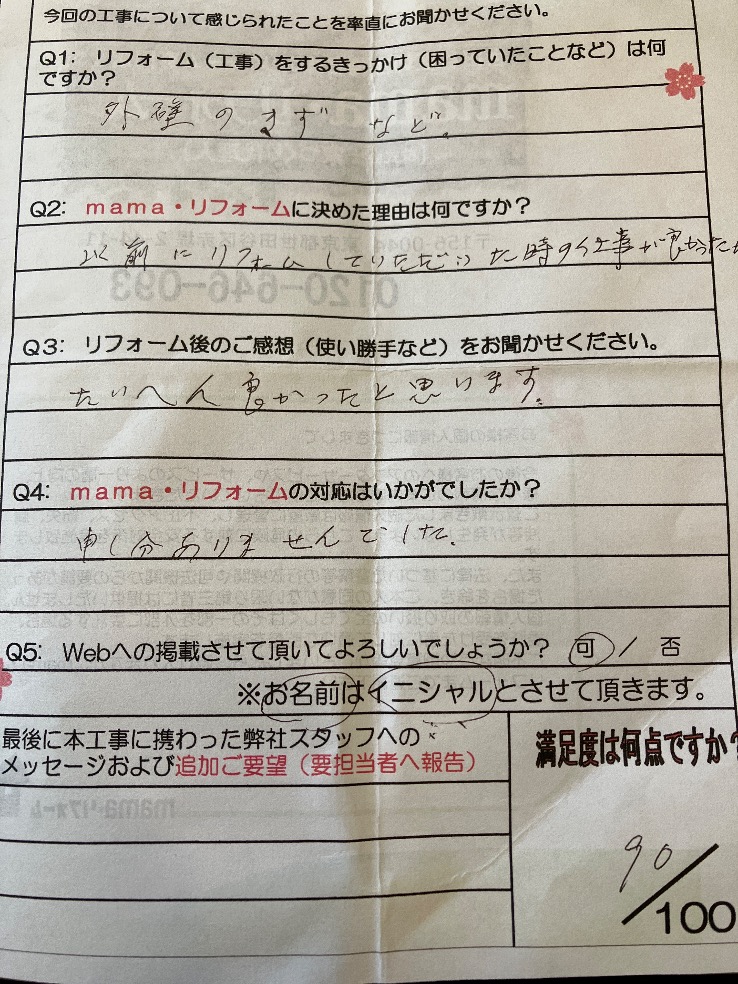 今回の工事について感じられたことを率直にお聞かせください。
Q1: リフォーム（工事）をするきっかけ（困っていたことなど）は何
ですか？
外壁のきず など。
Q2: ｍａｍａ・リフォームに決めた理由は何ですか？
以前にリフォームしていただいた時の仕事が良かったか
Q3: リフォーム後のご感想（使い勝手など）をお聞かせください。
たいへん良かったと思います。
Q4: ｍａｍａ・リフォームの対応はいかがでしたか？
申し分ありませんでした。
Q5: Webへの掲載させて頂いてよろしいでしょうか？ 可 / 否
※お名前はイニシャルとさせて頂きます。
最後に本工事に携わった弊社スタッフへの
メッセージおよび追加ご要望（要担当者へ報告）
満足度は何点ですか？
90/100